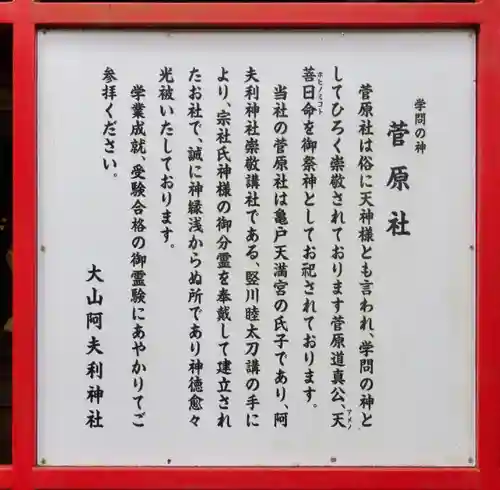 学問の神
菅原社
菅原社は俗に天神様とも言われ、学問の神と
してひろく崇敬されております菅原道真公、天
アメノ
善日命を御祭神としてお祀されております。
ホヒノミコト
当社の菅原社は亀戸天満宮の氏子であり、阿
夫利神社崇敬講社である、竪川睦太刀講の手に
より、宗社氏神様の御分霊を奉戴して建立され
たお社で、誠に神縁浅からぬ所であり神徳愈々
光被いたしております。
学業成就、受験合格の御霊験にあやかりてご
参拝ください。
大山阿夫利神社